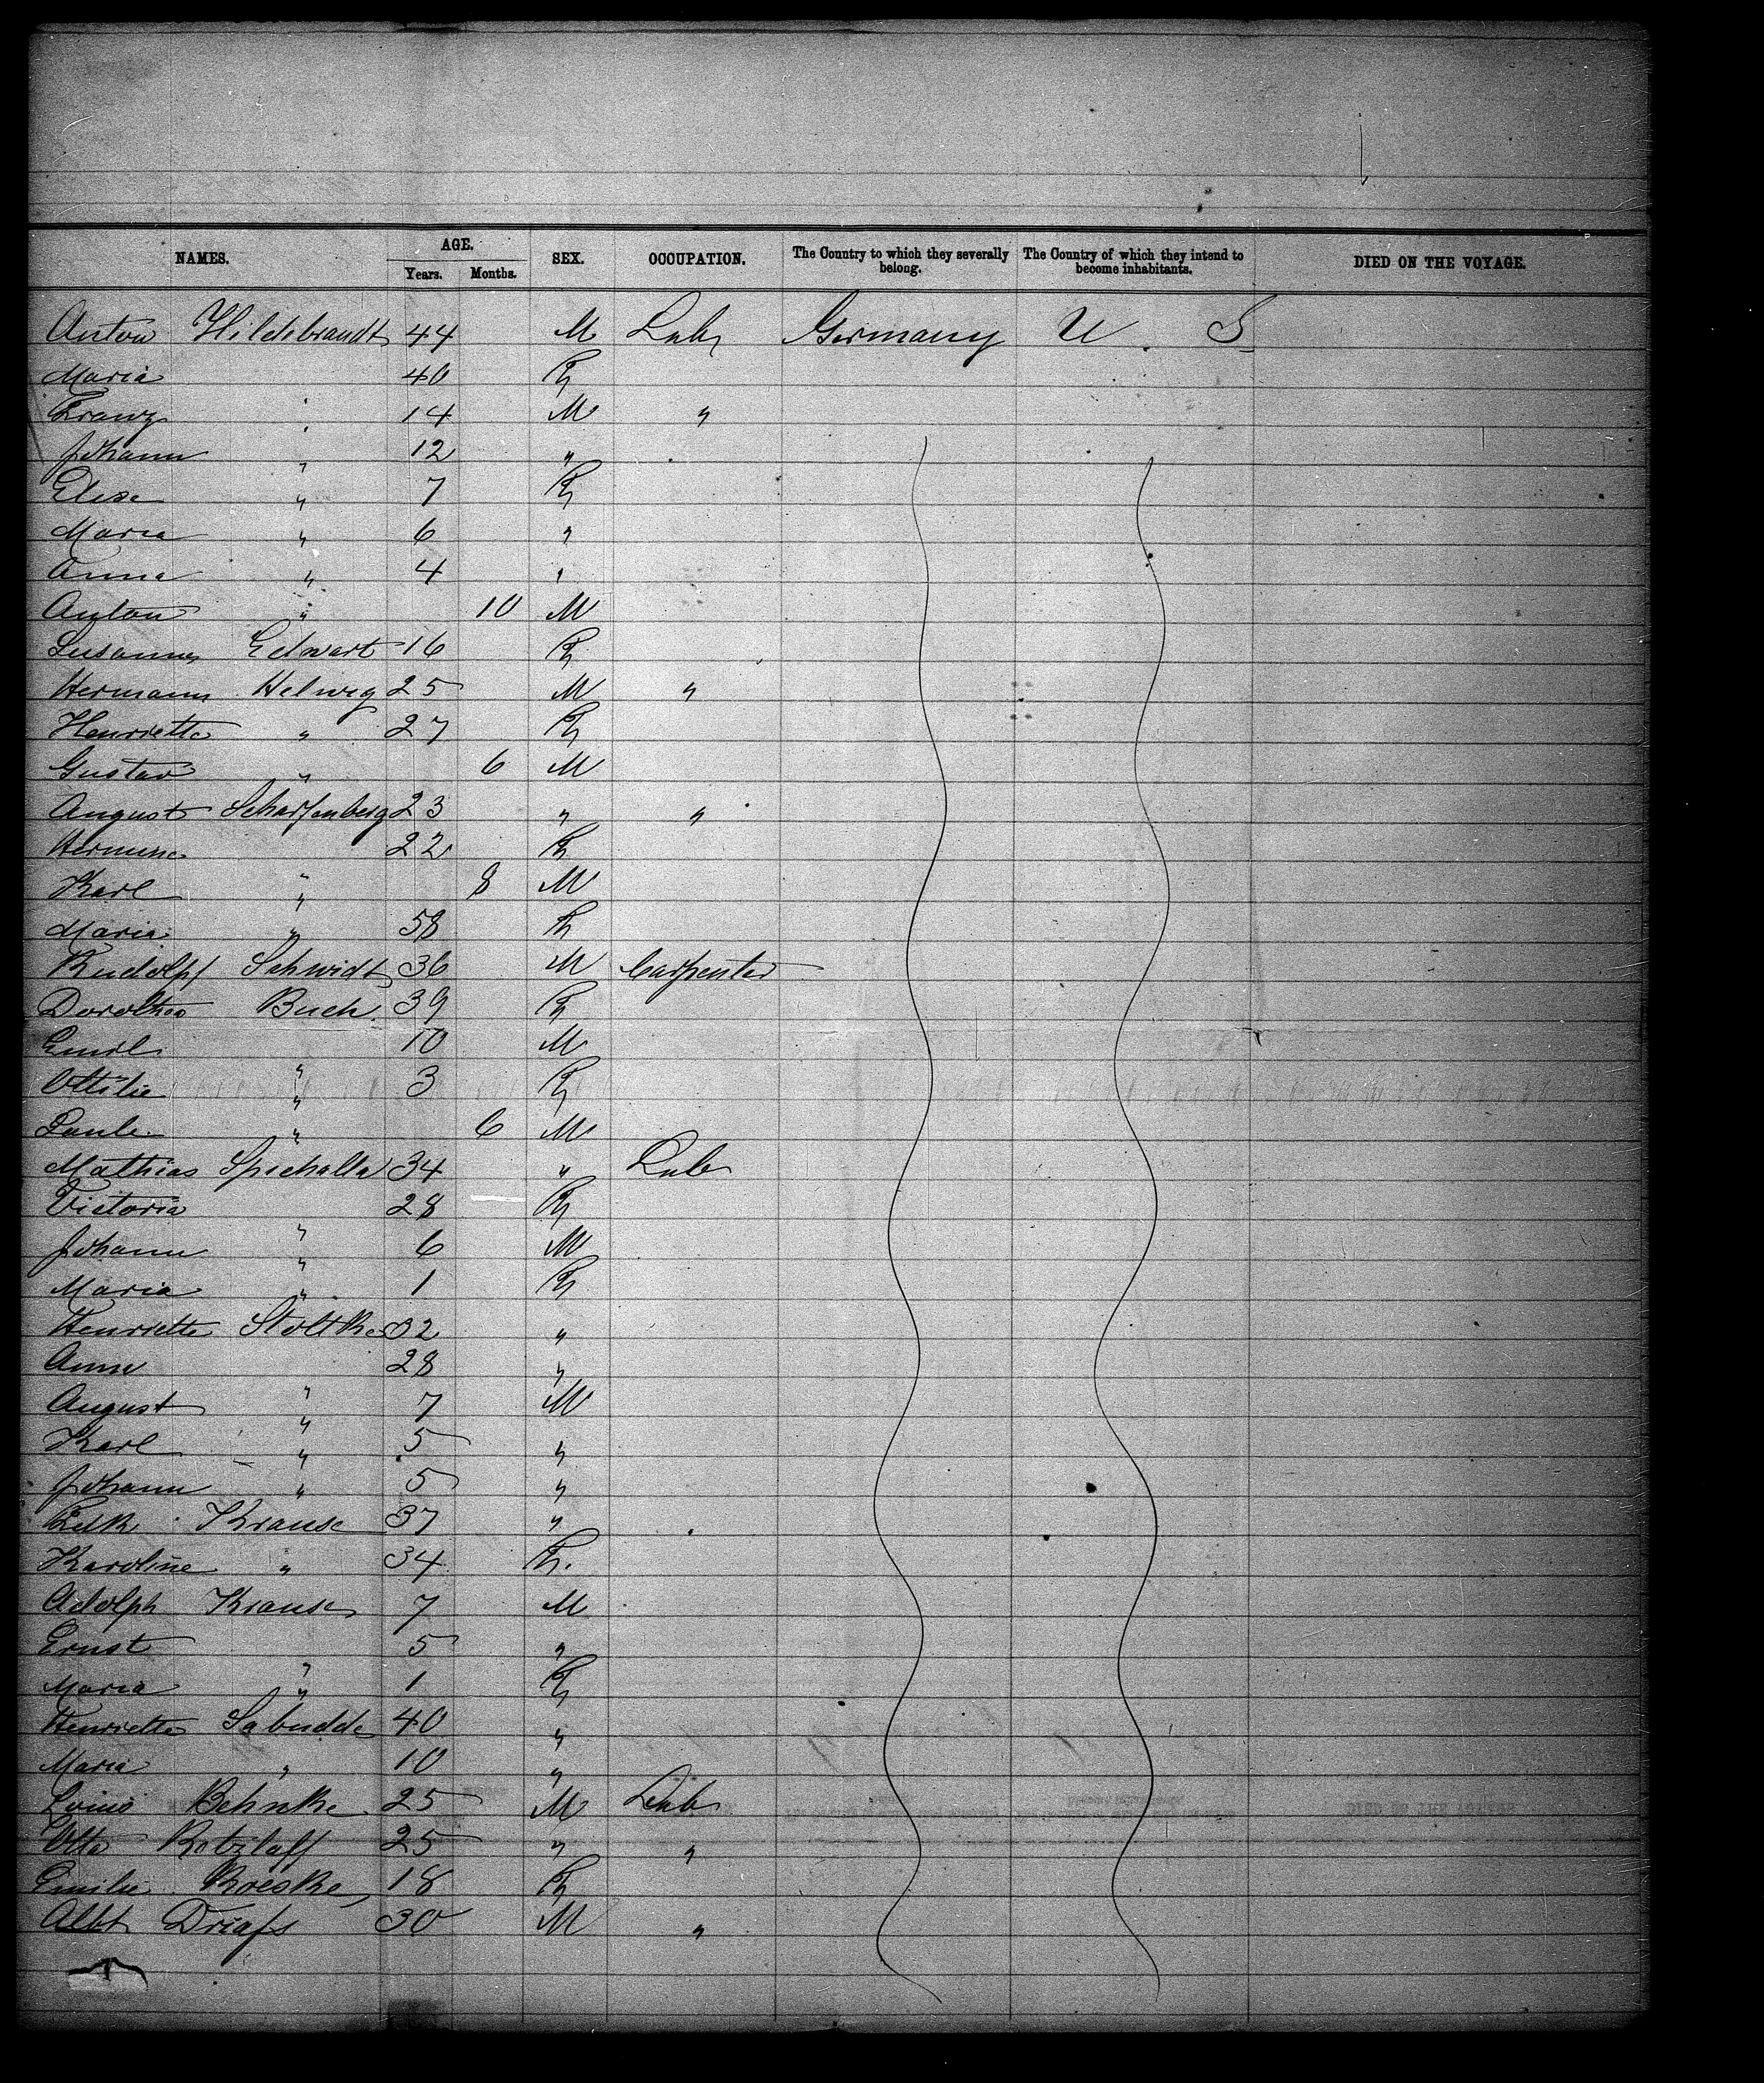 NAMES. AGE. Years. Months. SEX. OCCUPATION. The Country to which they severally belong. The Country of which they intend to become inhabitants. DIED ON THE VOYAGE.
Anton Hildebrandt 44 M Lab Germany U. S
Maria 40 F
Franz " 14 M "
Johann " 12 "
Elise " 7 F
Maria " 6 "
Anna " 4 "
Anton " 10 M
Susanna Edwart 16 F
Hermann Helwig 25 M "
Henriette " 27 F
Gustav " 6 M
August Scharfenberg 23 " "
Hermine 22 F
Karl " 8 M
Maria " 58 F
Rudolph Schmidt 36 M Carpenter
Dorothea Buch 39 F
Emil 10 M
Ottilie " 3 F
Paul " 6 M
Mathias Spichalla 34 " Lab
Victoria 28 F
Johann " 6 M
Maria " 1 F
Henriette Stoltke 32 "
Anna 28 "
August " 7 M
Karl " 5 "
Johann " 5 "
Krause 37 "
Karoline " 34 F.
Adolph Krause 7 M
Ernst 5 "
Maria " 1 F
Henriette Sabudda 40 "
Maria " 10 "
Louis Behnke 25 M Lab
Otto Retzlaff 25 " "
Emilie Roeske 18 F
Albt 30 M "